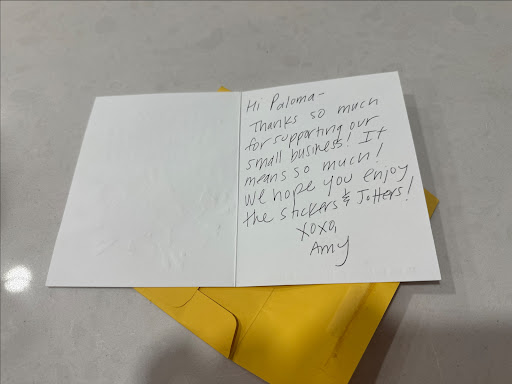 Hi Paloma-
Thanks so much
for supporting our
small business! It
means so much!
We hope you enjoy
the stickers & Jotters!
XOXO,
Amy